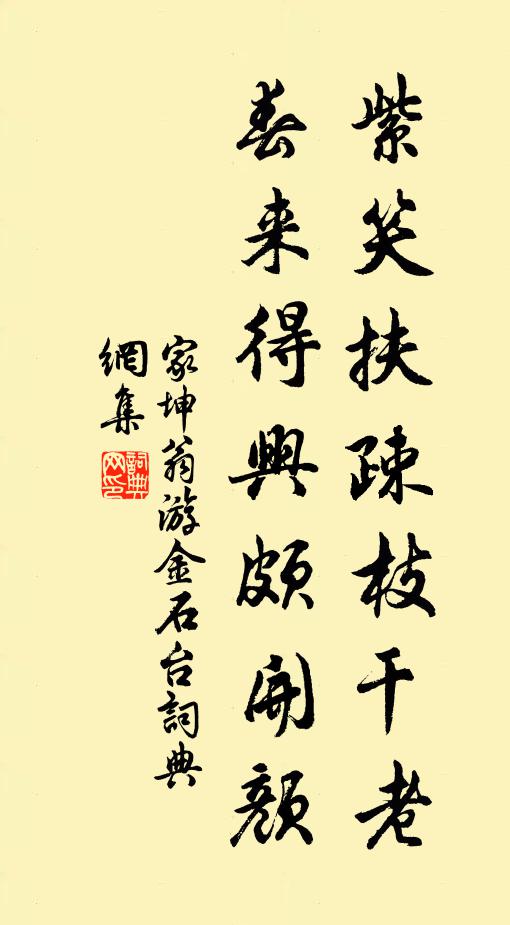 紫笑扶疎枝干老
春来得興頗開顏
家坤翁游金石台詞典
網集
詞典網印